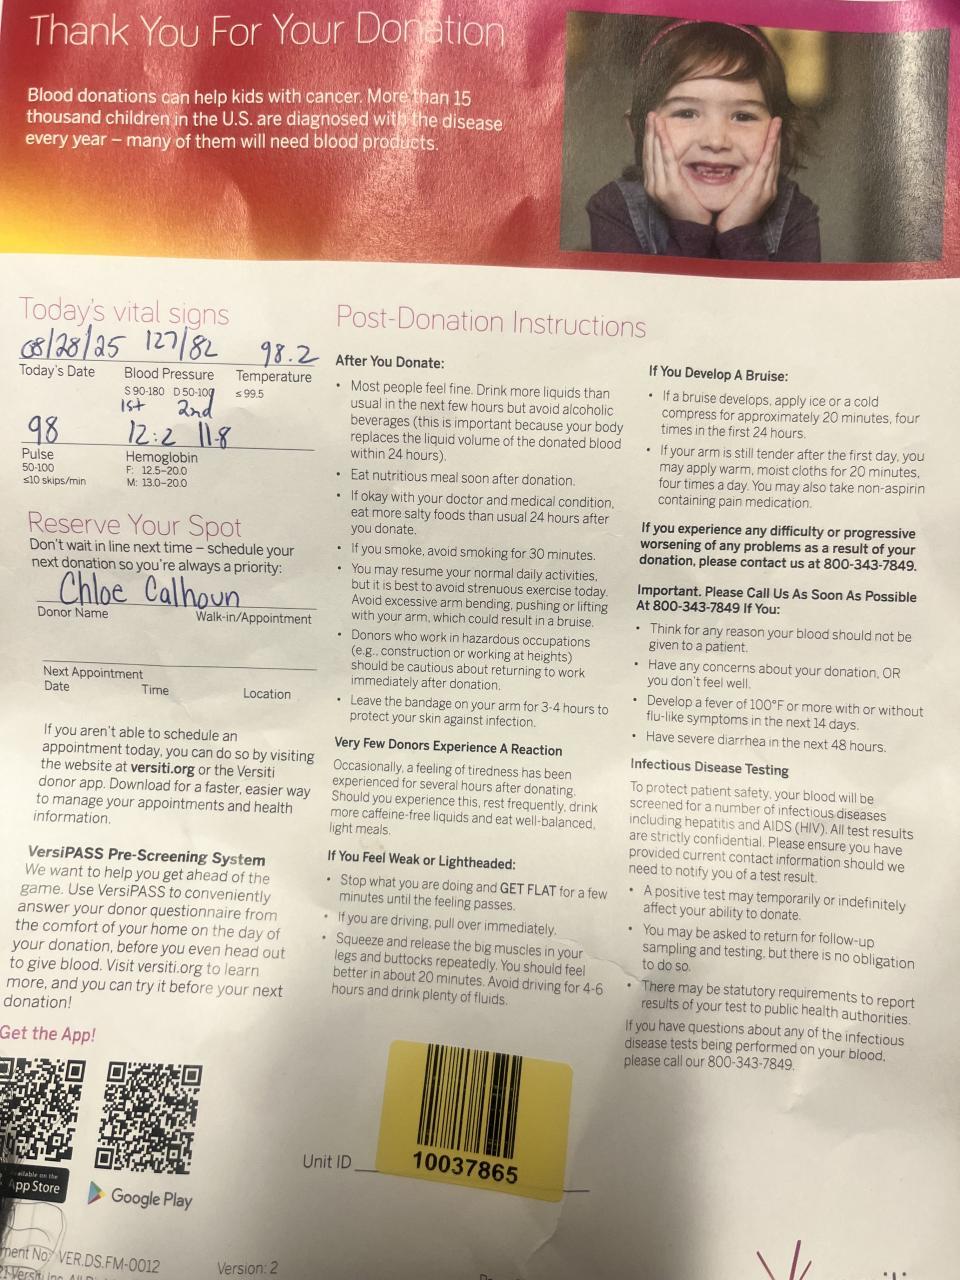 Thank You For Your Donation
Blood donations can help kids with cancer. More than 15
thousand children in the U.S. are diagnosed with the disease
every year – many of them will need blood products.
Today's vital signs
08/28/25 127/82 98.2
Today's Date Blood Pressure Temperature
S 90-180 D 50-100 ≤ 99.5
1st 2nd
98 12:2 11.8
Pulse Hemoglobin
50-100 F: 12.5-20.0
≤10 skips/min M: 13.0-20.0
Reserve Your Spot
Don't wait in line next time – schedule your
next donation so you're always a priority:
Chloe Calhoun
Donor Name Walk-in/Appointment
Next Appointment
Date Time Location
If you aren't able to schedule an
appointment today, you can do so by visiting
the website at versiti.org or the Versiti
donor app. Download for a faster, easier way
to manage your appointments and health
information.
VersiPASS Pre-Screening System
We want to help you get ahead of the
game. Use VersiPASS to conveniently
answer your donor questionnaire from
the comfort of your home on the day of
your donation, before you even head out
to give blood. Visit versiti.org to learn
more, and you can try it before your next
donation!
Get the App!
App Store
Google Play
Post-Donation Instructions
After You Donate:
• Most people feel fine. Drink more liquids than
usual in the next few hours but avoid alcoholic
beverages (this is important because your body
replaces the liquid volume of the donated blood
within 24 hours).
• Eat nutritious meal soon after donation.
• If okay with your doctor and medical condition,
eat more salty foods than usual 24 hours after
you donate.
• If you smoke, avoid smoking for 30 minutes.
• You may resume your normal daily activities,
but it is best to avoid strenuous exercise today.
Avoid excessive arm bending, pushing or lifting
with your arm, which could result in a bruise.
• Donors who work in hazardous occupations
(e.g., construction or working at heights)
should be cautious about returning to work
immediately after donation.
• Leave the bandage on your arm for 3-4 hours to
protect your skin against infection.
Very Few Donors Experience A Reaction
Occasionally, a feeling of tiredness has been
experienced for several hours after donating.
Should you experience this, rest frequently, drink
more caffeine-free liquids and eat well-balanced,
light meals.
If You Feel Weak or Lightheaded:
• Stop what you are doing and GET FLAT for a few
minutes until the feeling passes.
• If you are driving, pull over immediately.
• Squeeze and release the big muscles in your
legs and buttocks repeatedly. You should feel
better in about 20 minutes. Avoid driving for 4-6
hours and drink plenty of fluids.
If You Develop A Bruise:
• If a bruise develops, apply ice or a cold
compress for approximately 20 minutes, four
times in the first 24 hours.
• If your arm is still tender after the first day, you
may apply warm, moist cloths for 20 minutes,
four times a day. You may also take non-aspirin
containing pain medication.
If you experience any difficulty or progressive
worsening of any problems as a result of your
donation, please contact us at 800-343-7849.
Important. Please Call Us As Soon As Possible
At 800-343-7849 If You:
• Think for any reason your blood should not be
given to a patient.
• Have any concerns about your donation, OR
you don't feel well.
• Develop a fever of 100°F or more with or without
flu-like symptoms in the next 14 days.
• Have severe diarrhea in the next 48 hours.
Infectious Disease Testing
To protect patient safety, your blood will be
screened for a number of infectious diseases
including hepatitis and AIDS (HIV). All test results
are strictly confidential. Please ensure you have
provided current contact information should we
need to notify you of a test result.
• A positive test may temporarily or indefinitely
affect your ability to donate.
• You may be asked to return for follow-up
sampling and testing, but there is no obligation
to do so.
• There may be statutory requirements to report
results of your test to public health authorities.
If you have questions about any of the infectious
disease tests being performed on your blood,
please call our 800-343-7849.
Unit ID 10037865
No: VER.DS.FM-0012 Version: 2